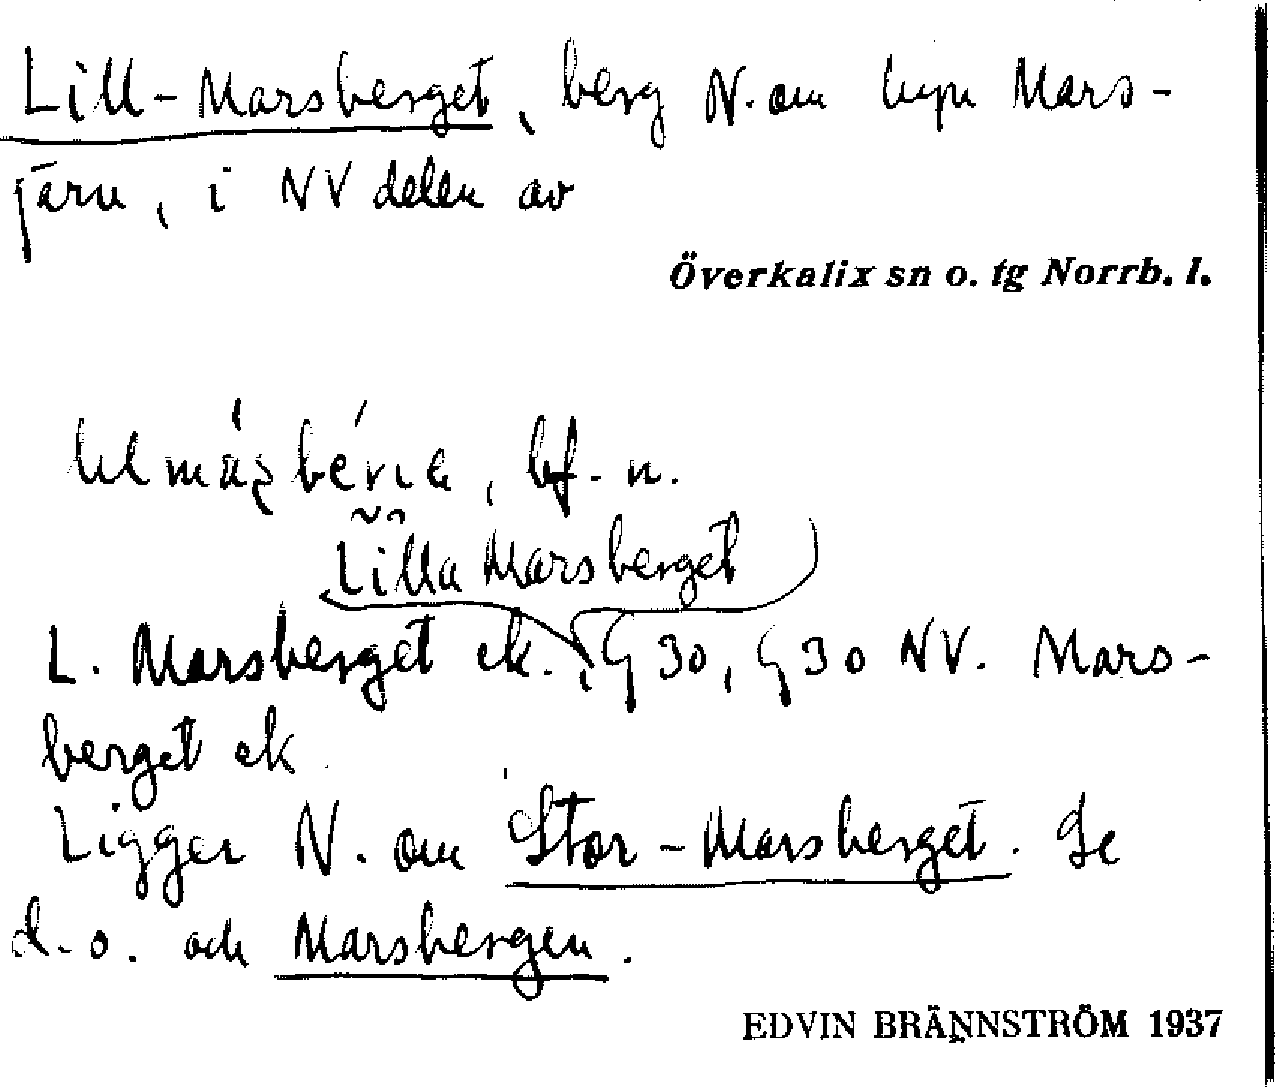 Lill-Marsberget, berg N. om byn Mars-
järv, i NV delen av
Överkalix sn o. tg Norrb. l.
bf. n.
Lilla Marsberget
L. Marsberget ek. G 30, G 30 NV. Mars-
berget ek
Ligger N. om Stor-Marsberget. Se
d. o. och Marsbergen.
EDVIN BRÄNNSTRÖM 1937